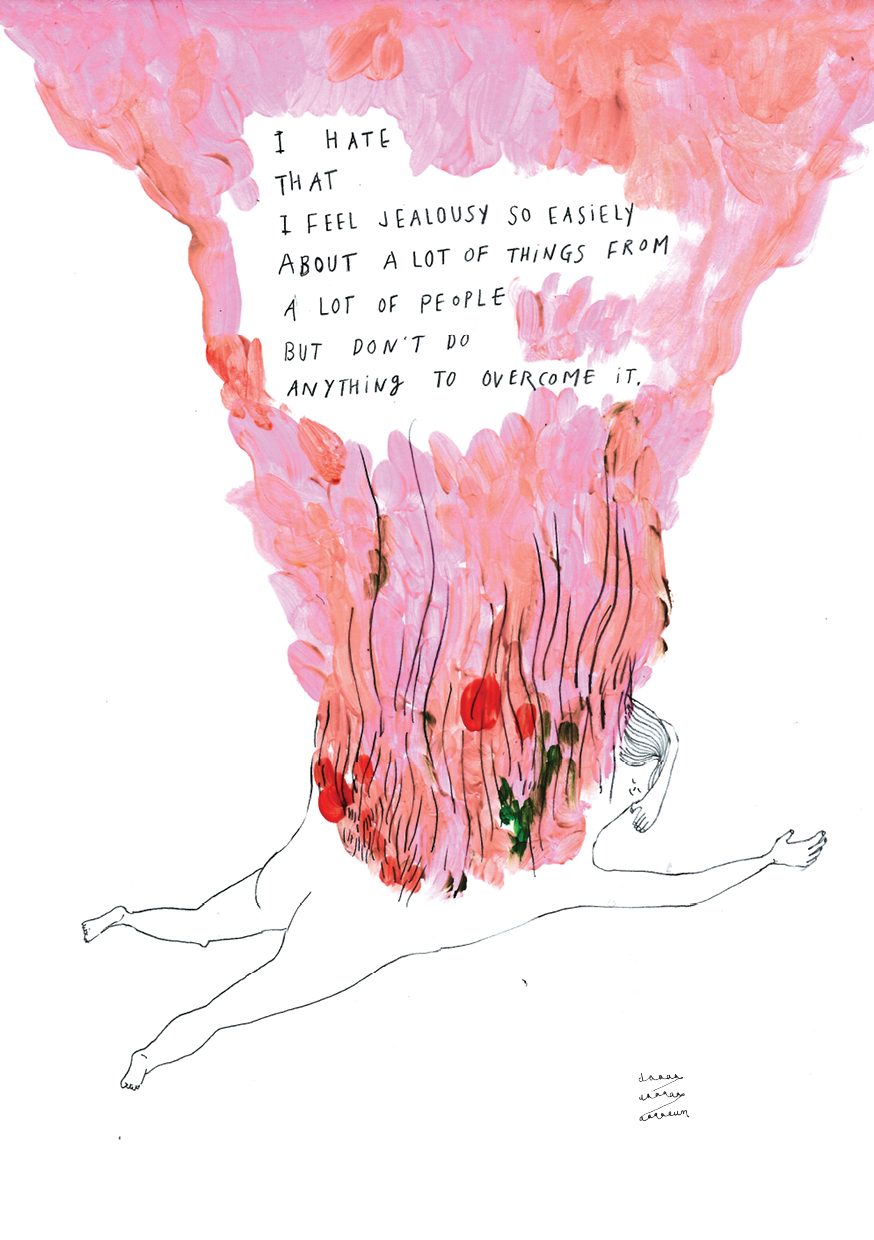 I HATE
THAT
I FEEL JEALOUSY SO EASiELY
ABOUT A LOT OF THiNGS FROM
A LOT OF PEOPLE
BUT DON'T DO
ANYTHiNg TO OVERCOME iT.